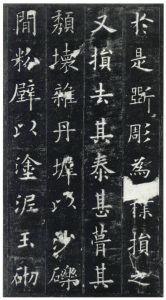 於是斲彫為樸損之
又損去其泰甚葺其
頹壞雜丹墀以沙礫
間粉壁以塗泥玉砌